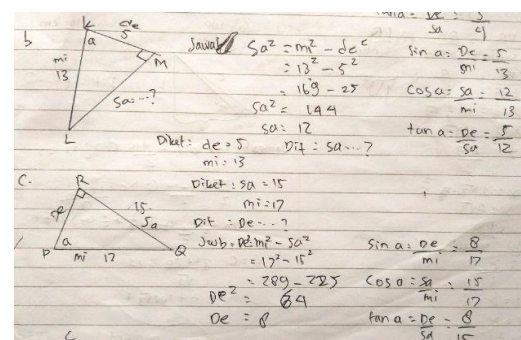 sa 4
b
K
a
de
5
mi
13
M
sa...?
L
Jawab Sa² = mi² - de²
= 13² - 5²
= 169 - 25
sa² = 144
sa = 12
Diket : de = 5 Dit : sa...?
mi = 13
Sin a = De = 5
mi 13
Cos a = Sa = 12
mi 13
tan a = De = 5
Sa 12
C.
R
de
15
Sa
P
a
mi 17
Q
Diket : sa = 15
mi = 17
Dit : De...?
Jwb = De² = mi² - Sa²
= 17² - 15²
= 289 - 225
De² = 64
De = 8
Sin a = De = 8
mi 17
Cos a = Sa = 15
mi 17
tan a = De = 8
Sa 15